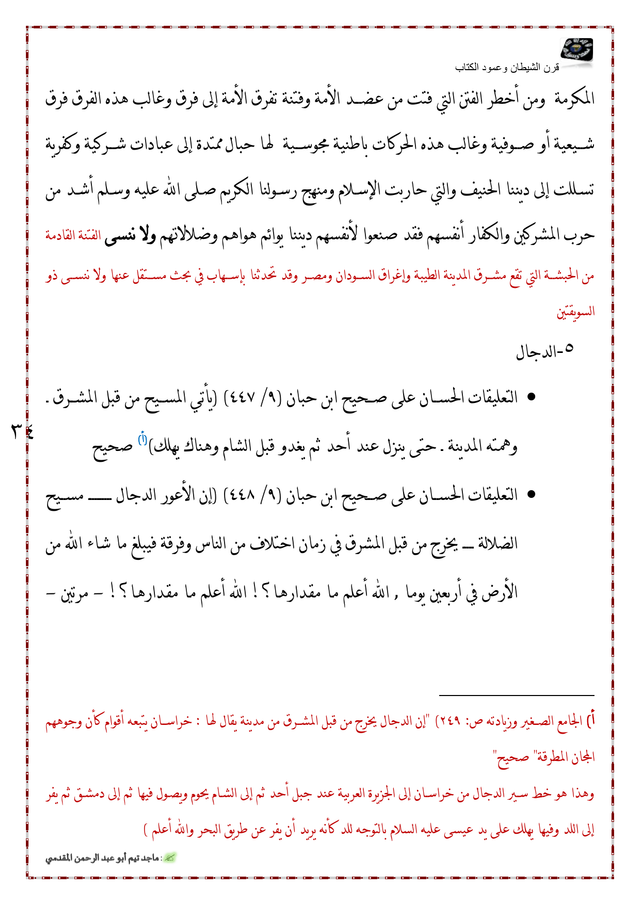 قرن الشيطان وعمود الكتاب
المكرمة ومن أخطر الفتن التي فتت من عضد الأمة وفتنة تفرق الأمة إلى فرق وغالب هذه الفرق فرق
شيعية أو صوفية وغالب هذه الحركات باطنية مجوسية لها حبال ممتدة إلى عبادات شركية وكفرية
تسللت إلى ديننا الحنيف والتي حاربت الإسلام ومنهج رسولنا الكريم صلى الله عليه وسلم أشد من
حرب المشركين والكفار أنفسهم فقد صنعوا لأنفسهم ديننا يوائم هواهم وضلالاتهم ولا ننسى الفتنة القادمة
من الحبشة التي تقع مشرق المدينة الطيبة وإغراق السودان ومصر وقد تحدثنا بإسهاب في بحث مستقل عنها ولا ننسى ذو
السويقتين
٥-الدجال
● التعليقات الحسان على صحيح ابن حبان (٩/ ٤٤٧) (يأتي المسيح من قبل المشرق .
وهمته المدينة . حتى ينزل عند أحد ثم يغدو قبل الشام وهناك يهلك)(أ) صحيح
● التعليقات الحسان على صحيح ابن حبان (٩/ ٤٤٨) (إن الأعور الدجال ـــ مسيح
الضلالة ـ يخرج من قبل المشرق في زمان اختلاف من الناس وفرقة فيبلغ ما شاء الله من
الأرض في أربعين يوما , الله أعلم ما مقدارها ؟ ! الله أعلم ما مقدارها ؟ ! – مرتين –
٣٤
أ) الجامع الصغير وزيادته ص: ٢٤٩) "إن الدجال يخرج من قبل المشرق من مدينة يقال لها : خراسان يتبعه أقوام كأن وجوههم
المجان المطرقة" صحيح"
وهذا هو خط سير الدجال من خراسان إلى الجزيرة العربية عند جبل أحد ثم إلى الشام يحوم ويصول فيها ثم إلى دمشق ثم يفر
إلى اللد وفيها يهلك على يد عيسى عليه السلام بالتوجه للد كأنه يريد أن يفر عن طريق البحر والله أعلم )
: ماجد تيم أبو عبد الرحمن المقدسي